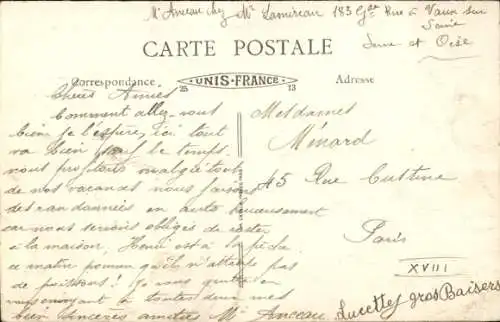 Mme Anceau chez Mr Lamireau 183 Gde Rue à Vaux sur
Seine
Seine et Oise
CARTE POSTALE
Correspondance
25 UNIS-FRANCE 13
Adresse
Chères Amies
Comment allez-vous
bien je l'espère, ici tout
va bien sauf le temps.
nous profitons malgré tout
de nos vacances nous faisons
des randonnées en auto heureusement
car nous serions obligés de rester
à la maison. Henri est à la pêche
ce matin pourvu qu'il n'attrape pas
de poissons! Je vous quitte en
vous envoyant à toutes deux mes
bien sincères amitiés Mme Anceau
Lucette gros Baisers
Mesdames
Ménard
45 Rue Custine
Paris
XVIII